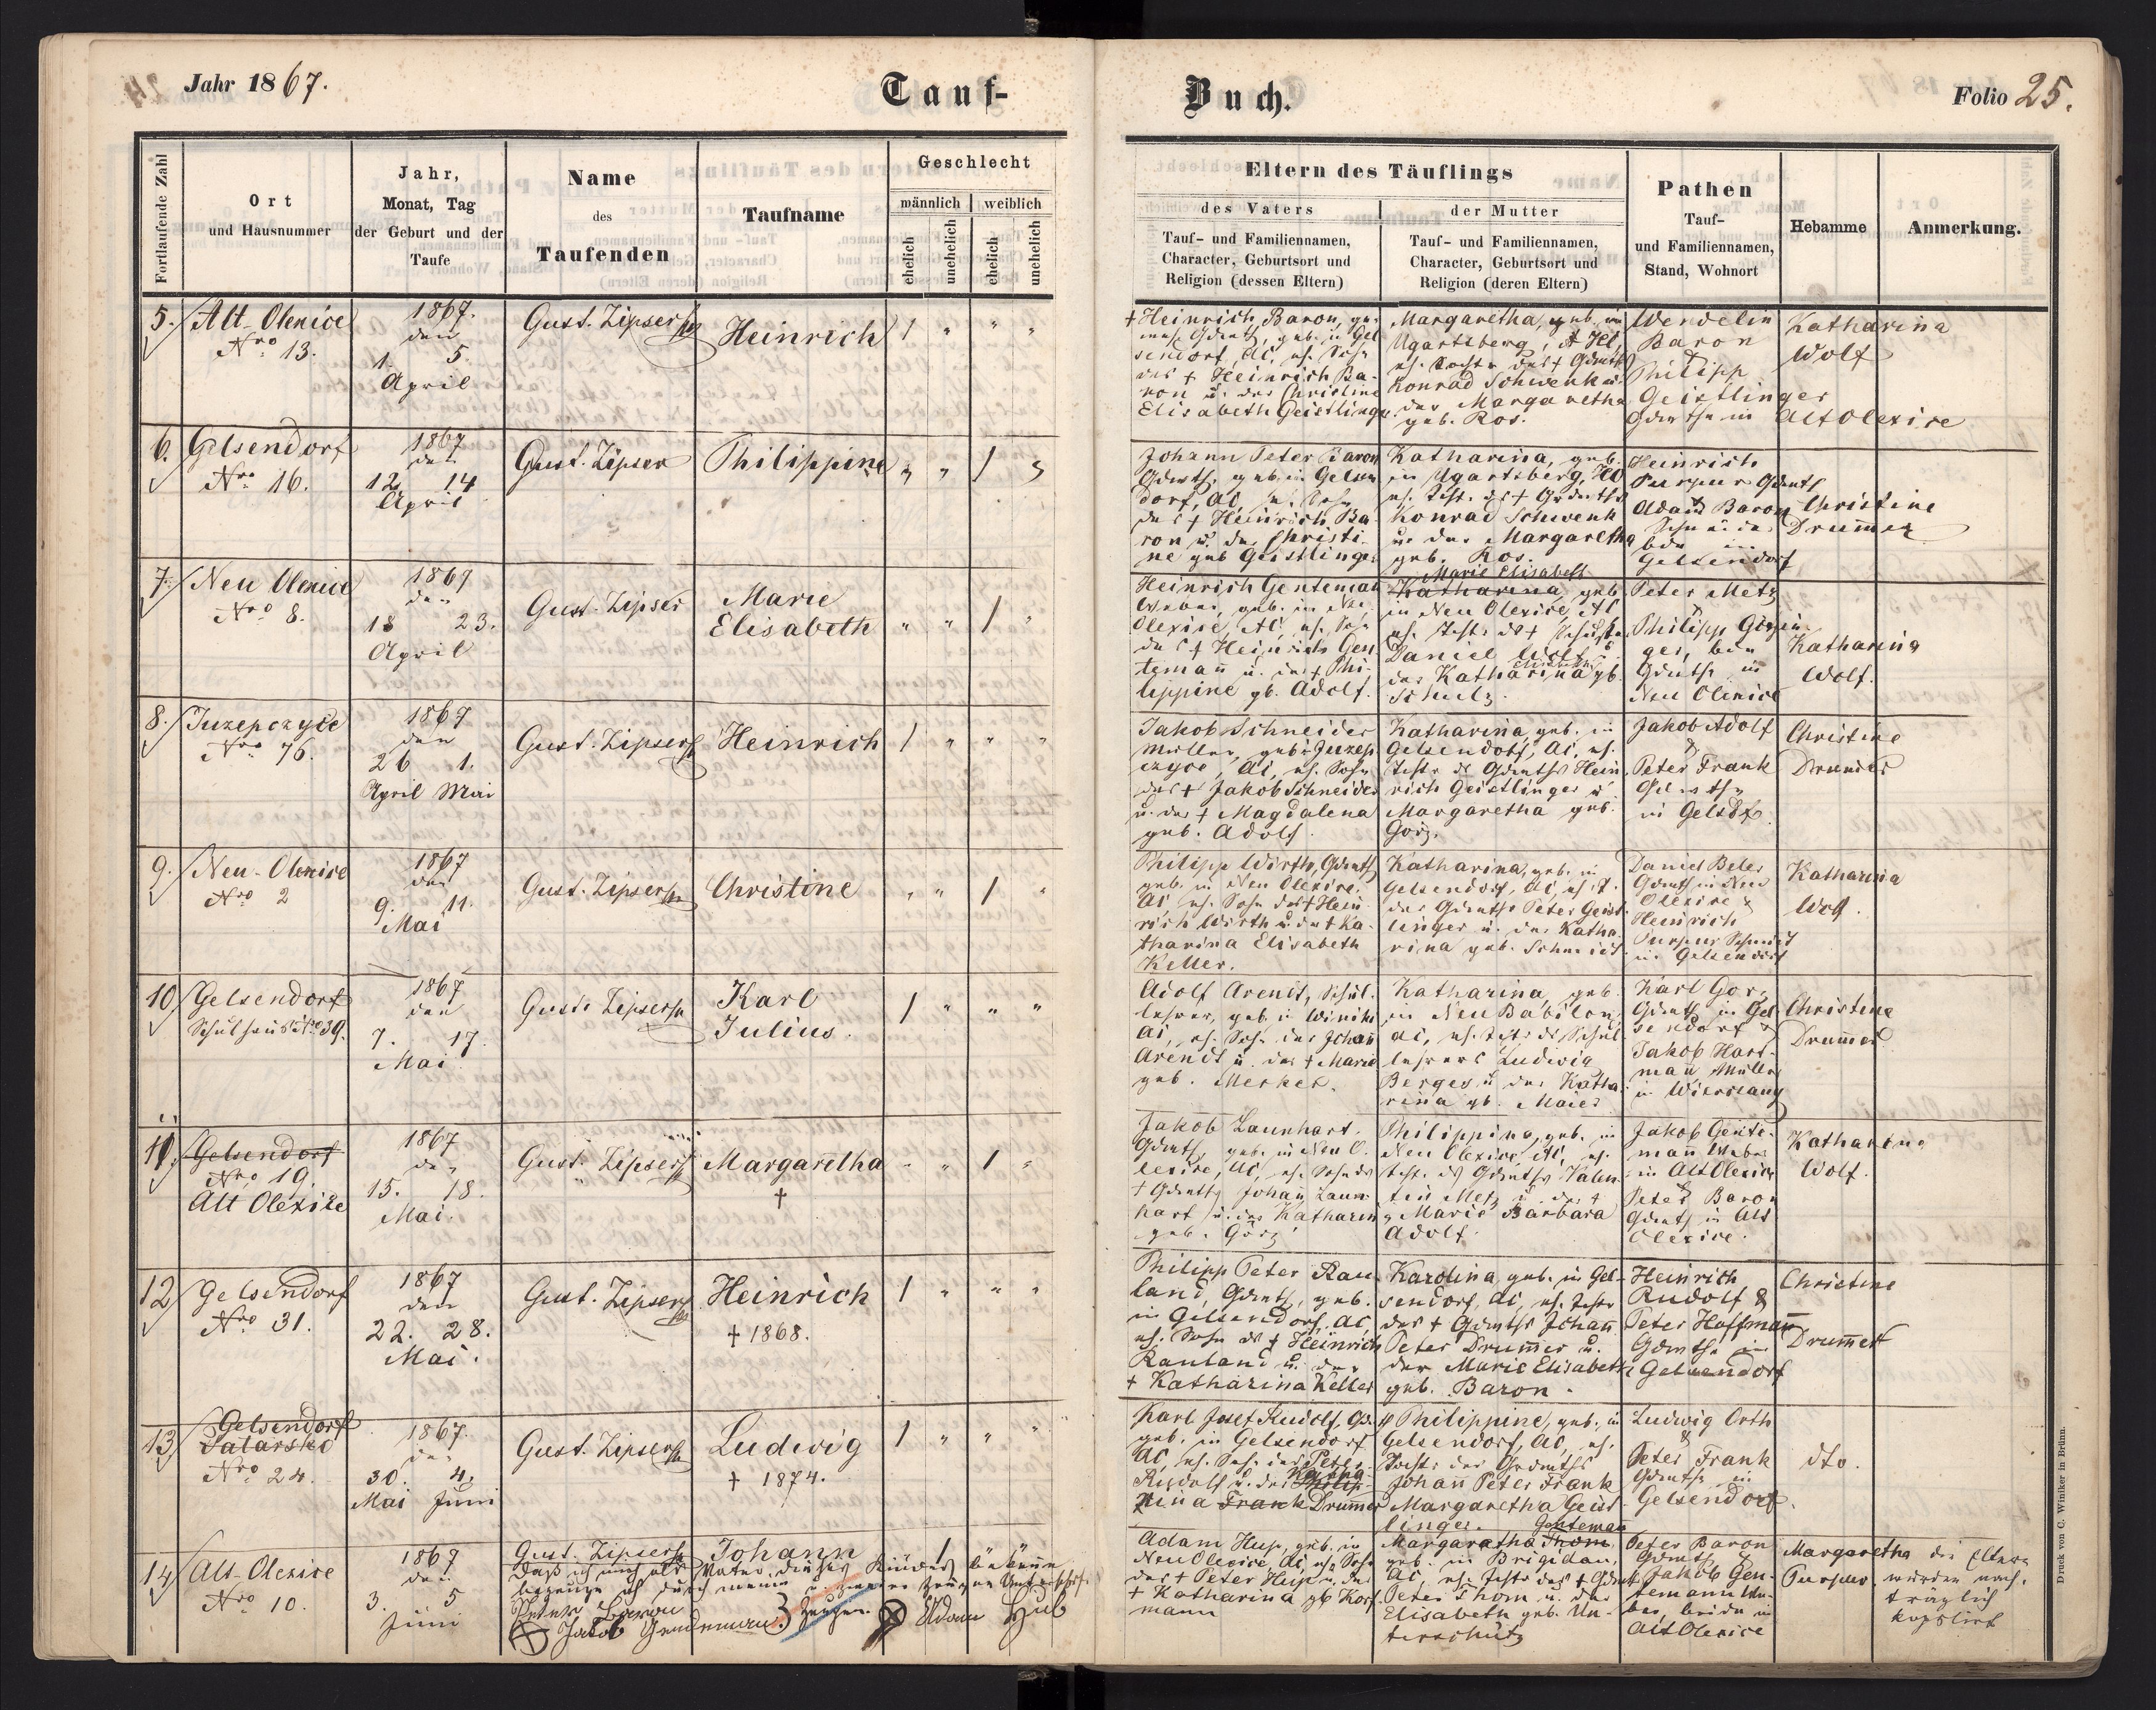 Jahr 1867.
Tauf-
Buch.
Folio 25.
Fortlaufende Zahl
Ort
und Hausnummer
Jahr,
Monat, Tag
der Geburt und der
Taufe
Name
des
Taufenden
Taufname
Geschlecht
männlich
weiblich
ehelich
unehelich
ehelich
unehelich
Eltern des Täuflings
des Vaters
Tauf- und Familiennamen,
Character, Geburtsort und
Religion (dessen Eltern)
der Mutter
Tauf- und Familiennamen,
Character, Geburtsort und
Religion (deren Eltern)
Pathen
Tauf-
und Familiennamen,
Stand, Wohnort
Hebamme
Anmerkung.
5. Alt-Olexice
Nro 13.
1867.
den
1. 5.
April
Gust. Zipser
Heinrich
1 " " "
+ Heinrich Baron, ge-
sendorf, AC, eh. Sohn
des + Heinrich Ba-
ron u. der Christine
Elisabeth Geistlinger
Margaretha, geb. in
Ugartsberg, A.
eh. Tochter des +
Konrad Schwenk u.
der Margaretha
geb. Ros.
Wendelin
Baron
&
Philipp
Geistlinger
in Alt Olexice
Katharina
Wolf
6. Gelsendorf
Nro 16.
1867
den
12. 14
April
Gust. Zipser
Philippine
" " 1 "
Johann Peter Baron
geb. in Gelsen
dorf, AC, eh. Sohn
des + Heinrich Ba
ron u. der Christi-
ne geb Geistlinger
Katharina, geb.
in Ugartsberg,
eh. Tcht. des +
Konrad Schwenk
u. der Margaretha
geb. Ros.
Heinrich
Purpur
Adam Baron
in
Gelsendorf
Christine
Drum̄er
7. Neu Olexice
Nro 8.
1867
den
18 23.
April
Gust. Zipser
Marie
Elisabeth
" " 1 "
Heinrich Gentemañ
Weber, geb. in Neu
Olexice, AC, eh. Sohn
des + Heinrich Gen
temañ u. der + Phi-
lippine gb. Adolf.
Marie Elisabeth
Katharina, geb.
in Neu Olexice, AC
eh. Tcht. des +
Daniel Wolf u.
der Katharina gb.
Schulz.
Peter Metz
&
Philipp
in
Neu Olexice
Katharina
Wolf.
8. Juzepczyce
Nro 76.
1867
den
26 1.
April Mai
Gust. Zipser
Heinrich
1 " " "
Jakob Schneider
Müller, geb. Juzep
czyce, AC, eh. Sohn
des + Jakob Schneider
u. der + Magdalena
geb. Adolf.
Katharina, geb. in
Gelsendorf, AC, eh.
Hein
rich Geistlinger u.
Margaretha geb.
Görz.
Jakob Adolf
&
Peter Frank
in Gelsdf.
Christine
Drum̄er
9. Neu-Olexice
Nro 2
1867
den
9. 11.
Mai
Gust. Zipser
Christine
" " 1 "
Philipp Wirth,
geb. in Neu Olexice.
AC, eh. Sohn des + Hein
rich Wirth u. der + Ka-
tharina Elisabeth
Keller.
Katharina, geb. in
Gelsendorf, AC, eh. T.
des Peter Geist
linger u. der Katha
rina geb. Schmidt
Daniel Beler
in Neu
Olexice &
Heinrich
Purpur Schmied
in Gelsendorf
Katharina
Wolf.
10 Gelsendorf
Schulhaus Nro 39.
1867
den
7. 17.
Mai
Gust. Zipser
Karl
Julius.
1 " " "
Adolf Arendt, Schul-
lehrer, geb. in Winiki
AC, eh. Sohn des Johañ
Arendt u. der + Marie
geb. Merker.
Katharina, geb.
in Neu Babilon,
AC, eh. Tcht. des Schul
lehrers Ludwig
Berges u. der Katha
rina gb. Maier
Karl Gor
in Gel
sendorf &
Jakob Hart-
mañ Müller
in
Christine
Drum̄er
11. Gelsendorf
Nro 19.
Alt Olexice
1867
den
15. 18.
Mai.
Gust. Zipser
Margaretha
+
" " 1 "
Jakob Launhart.
geb. in Neu O-
lexice, AC, eh. Sohn des
+ Johañ Laun-
hart u. der Katharina
geb. Görz
Philippine, geb. in
Neu Olexice AC, eh.
Tcht. des Valen-
tin Metz u. der +
Marie Barbara
Adolf.
Jakob Gente-
mañ Weber
in Alt Olexice
&
Peter Baron
in Alt
Olexice.
Katharina
Wolf.
12 Gelsendorf
Nro 31.
1867
den
22. 28.
Mai.
Gust. Zipser
Heinrich
+ 1868.
1 " " "
Philipp Peter Rau-
land, geb.
in Gelsendorf, AC,
eh. Sohn des + Heinrich
Rauland u. der
+ Katharina Keller
Karolina, geb. in Gel-
sendorf, AC, eh. Tcht
des + Johañ
Peter Drum̄er u.
der Marie Elisabeth
geb. Baron.
Heinrich
Rudolf &
Peter Hoffmañ
in
Gelsendorf
Christine
Drum̄er
13 Gelsendorf
Tatarsko
Nro 24.
1867.
den
30. 4.
Mai Juni
Gust. Zipser
Ludwig
+ 1874.
1 " " "
Karl Josef Rudolf,
geb. in Gelsendorf
AC, eh. Sohn des Peter
Rudolf u. der Katha-
rina Frank Drum̄er
Philippine, geb. in
Gelsendorf, AC, eh.
Tochter des
Johañ Peter Frank
Margaretha Geist-
linger.
Ludwig Orth
&
Peter Frank
in
Gelsendorf.
dto.
14 Alt-Olexice
Nro 10.
1867
den
3. 5
Juni
Gust. Zipser
Johann
1
Daß ich mich als Vater dieses Kindes bekenne
bezeuge ich durch meine u. zweier Zeugen Unterschrift
Peter Baron
Jakob Gendemann } Zeugen.
Adam Hub
Adam Hup, geb. in
Neu Olexice, AC, eh. Sohn
des + Peter Hup u. der
+ Katharina gb Kost
mann
Gentemañ
Margaretha Thom
geb. in Brigidau,
AC, eh. Tcht. des +
Peter Thom u. der
Elisabeth geb. Un-
terschütz
Peter Baron
&
Jakob Gen-
temann We-
ber, beide in
Alt Olexice
Margaretha
Purpur.
die Eltern
wurden nach-
träglich
kopulirt
Druck von C. Winiker in Brünn.